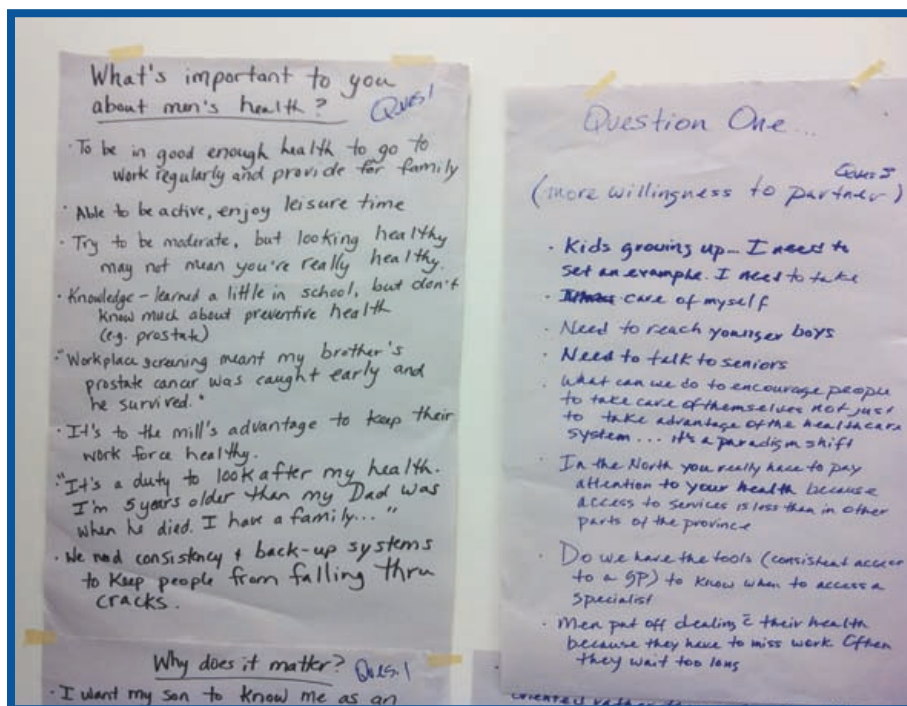 What's important to you
about men's health?
Ques 1
· To be in good enough health to go to
work regularly and provide for family
· Able to be active, enjoy leisure time
· Try to be moderate, but looking healthy
may not mean you're really healthy.
· Knowledge - learned a little in school, but don't
know much about preventive health
(e.g. prostate)
· "Workplace screening meant my brother's
prostate cancar was caught early and
he survived."
· It's to the mill's advantage to keep their
work force healthy.
· "It's a duty to look after my health.
I'm 5 years older than my Dad was
when he died. I have a family..."
· We need consistency + back-up systems
to keep people from falling thru
cracks.
Why does it matter? Ques. 1
· I want my son to know me as an
Question One...
(more willingness to partner)
· Kids growing up... I need to
set an example. I need to take
· care of myself
· Need to reach younger boys
· Need to talk to seniors
· What can we do to encourage people
to take care of themselves not just
to take advantage of the healthcare
system... it's a paradigm shift
· In the North you really have to pay
attention to your health because
access to services is less than in other
parts of the province
· Do we have the tools (consistent access
to a GP) to know when to access a
specialist
· Men put off dealing c̄ their health
because they have to miss work. Often
they wait too long